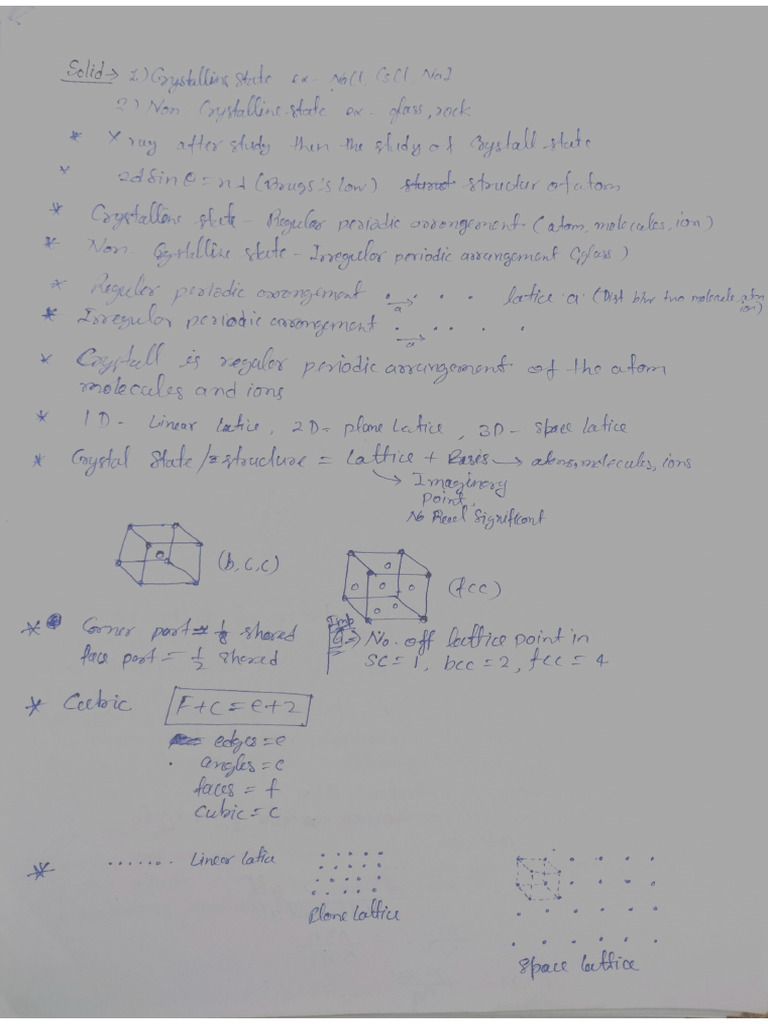 Solid→ 1.) Crystalline state ex- NaCl, CsCl, NaI
2) Non Crystalline state ex- glass, rock
* X ray after study then the study of Crystall state
* 2d Sin θ = nλ (Brags's low) structur of atom
* Crystallone state - Reguler periodic arrongement (atom, molecules, ion)
* Non Crystalline state - Irregulor periodic arrangement (glass)
* Reguler periodic arrongement . . . . latice a (Dist btw two molecule, atm ion)
a
* Irregulor periodic arrongement . . . . .
a
* Crystall is reguler periodic arrangement of the atom
molecules and ions
* 1D - Linear latice, 2D = plane Latice, 3D - space latice
* Crystal State / structure = Lattice + Basis → atoms, molecules, ions
→ Imaginery
point,
No Reeel Significent
(b,c,c)
(fcc)
* Corner part = 1/8 shared
face part = 1/2 shared
Imp
Q→ No. off lattice point in
SC = 1, bcc = 2, fcc = 4
* Cubic F+C = e+2
edges = e
angles = c
faces = f
cubic = c
* ....... Linear latice
Plane lattice
Space lattice